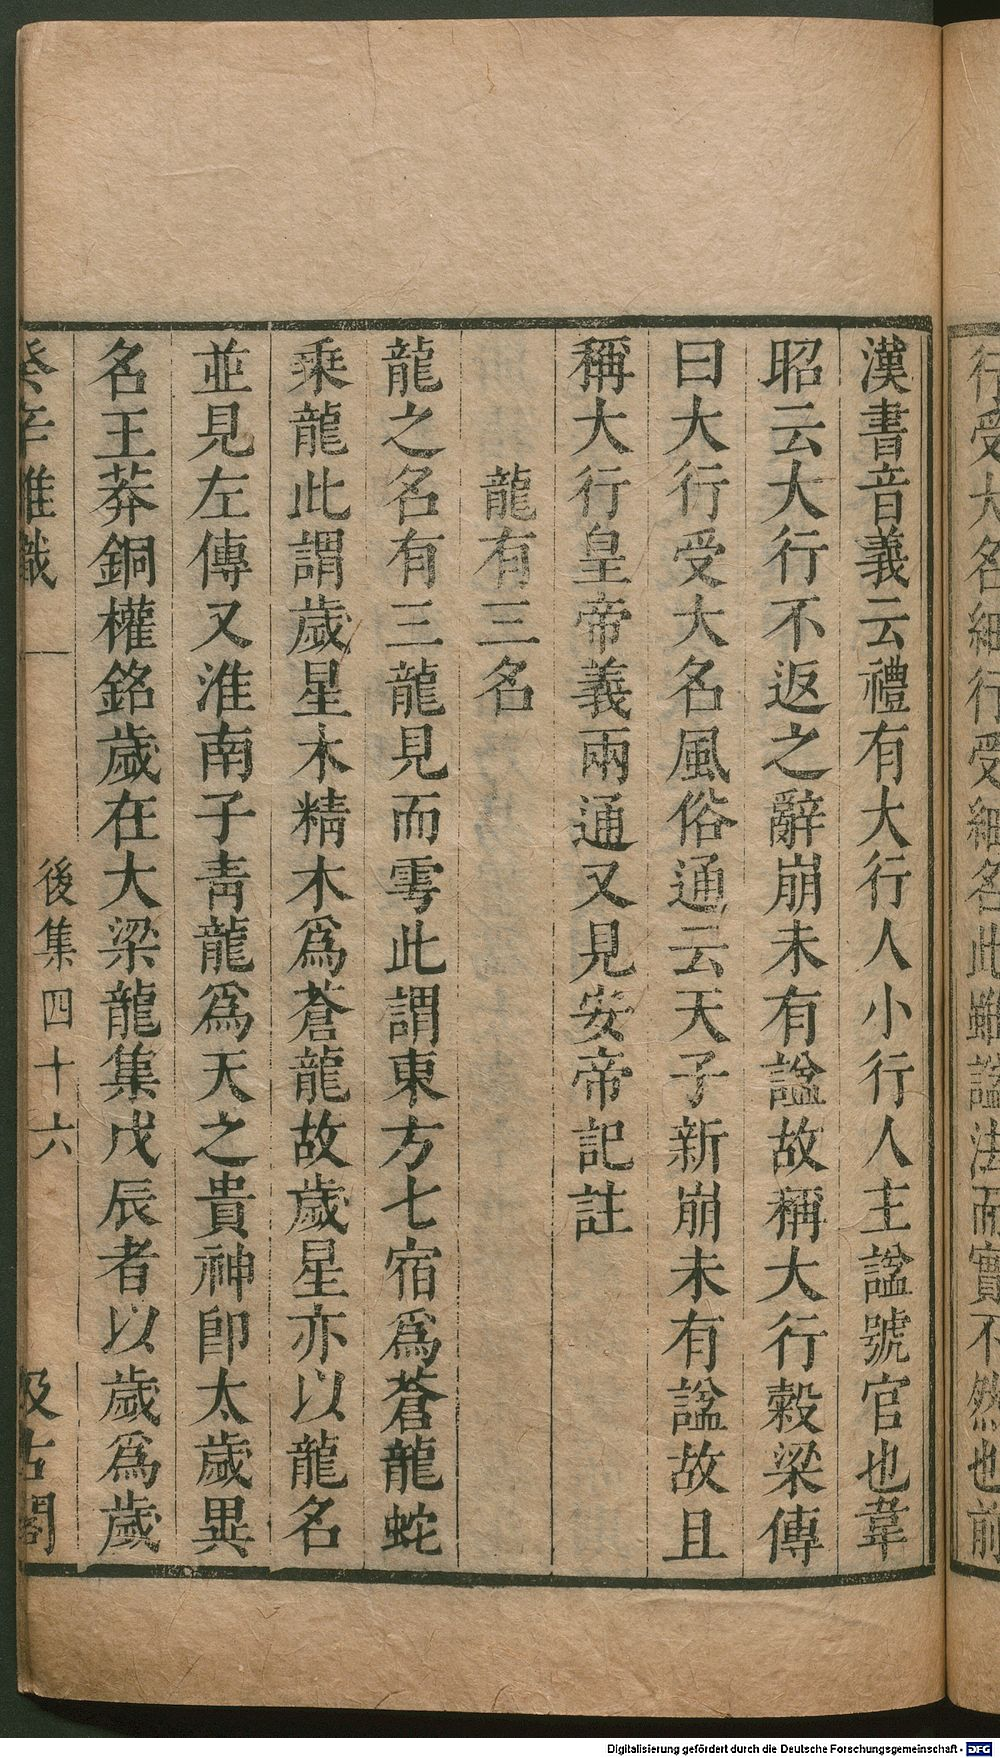 行受大名細行受細名此雖諡法而實不然也前
漢書音義云禮有大行人小行人主諡號官也韋
昭云大行不返之辭崩未有諡故稱大行穀梁傳
曰大行受大名風俗通云天子新崩未有諡故且
稱大行皇帝義兩通又見安帝記註
龍有三名
龍之名有三龍見而雩此謂東方七宿爲蒼龍蛇
乘龍此謂歲星木精木爲蒼龍故歲星亦以龍名
並見左傳又淮南子青龍爲天之貴神卽太歲異
名王莽銅權銘歲在大梁龍集戊辰者以歲爲歲
癸辛雜識
後集四十六
汲古閣
Digitalisierung gefördert durch die Deutsche Forschungsgemeinschaft - DFG